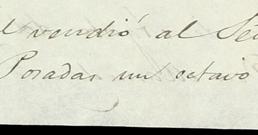 vendió al Se
Posadas un octavo